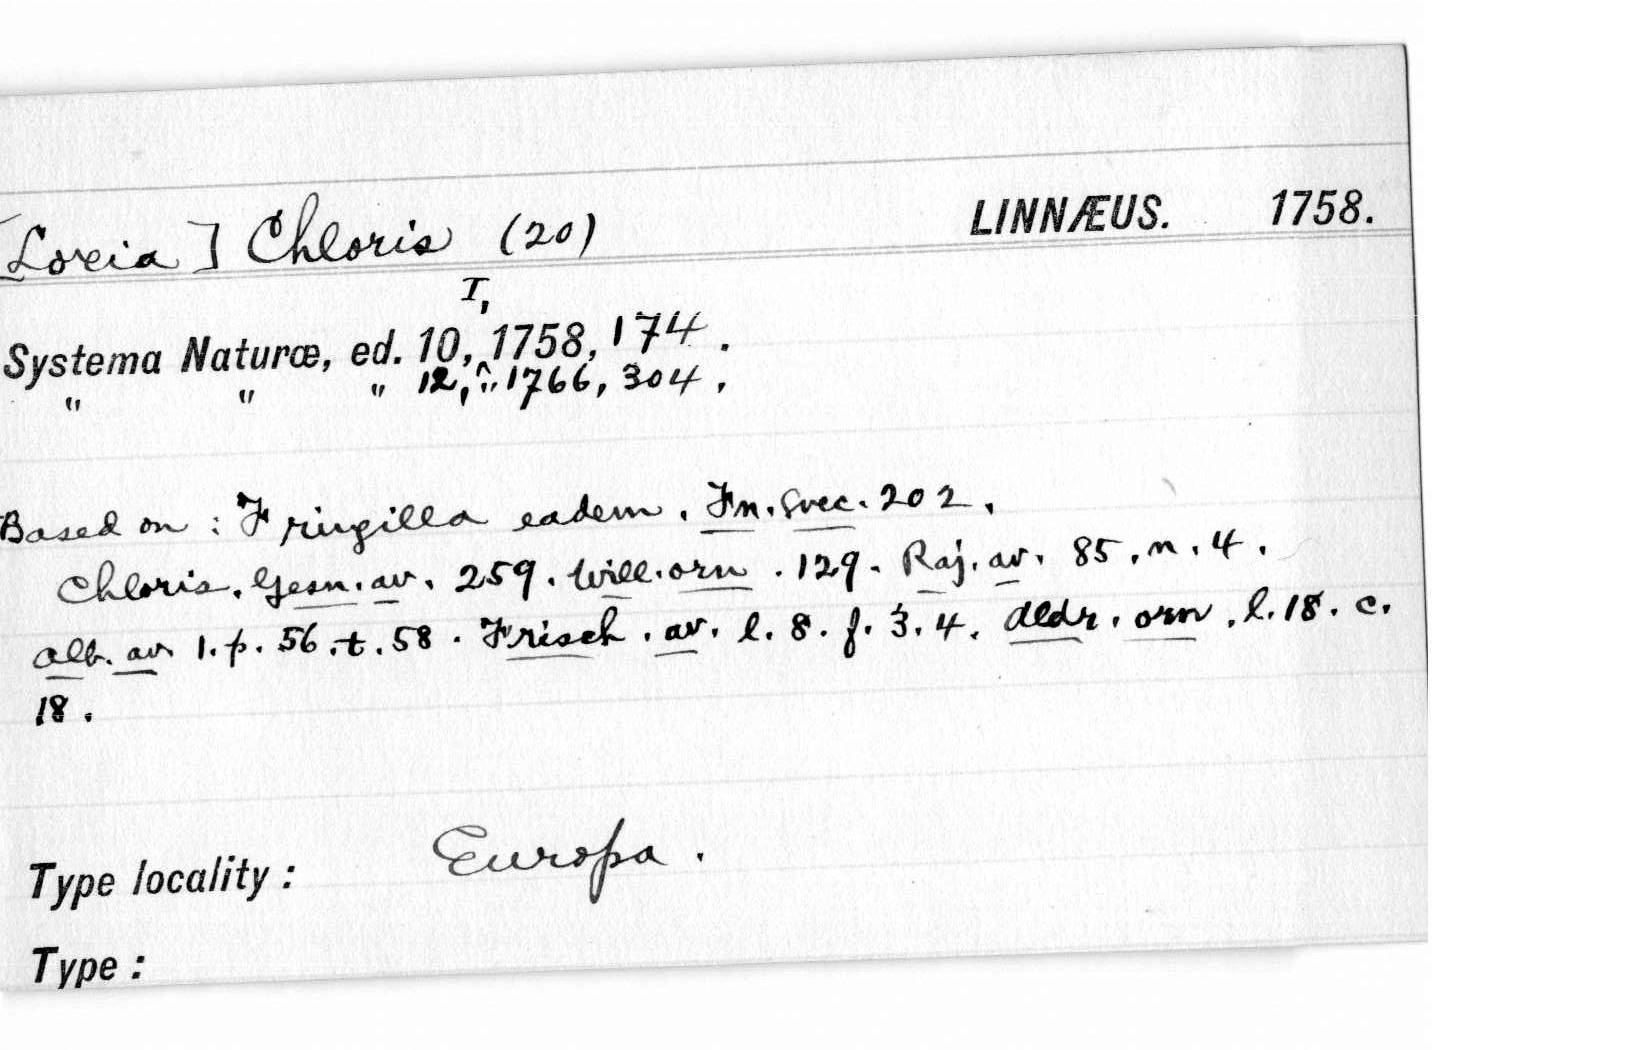 [Loxia] Chloris (20) LINNÆUS. 1758.
I,
Systema Naturæ, ed. 10, ^ 1758, 174.
" " " 12, ", 1766, 304.
Based on : Fringilla eadem. Fn. Svec. 202.
Chloris. Gesn. av. 259. Will. orn. 129. Raj. av. 85. n. 4.
Alb. av 1. p. 56. t. 58. Frisch. av. l. 8. f. 3. 4. Aldr. orn. l. 18. c.
18.
Type locality : Europa.
Type :